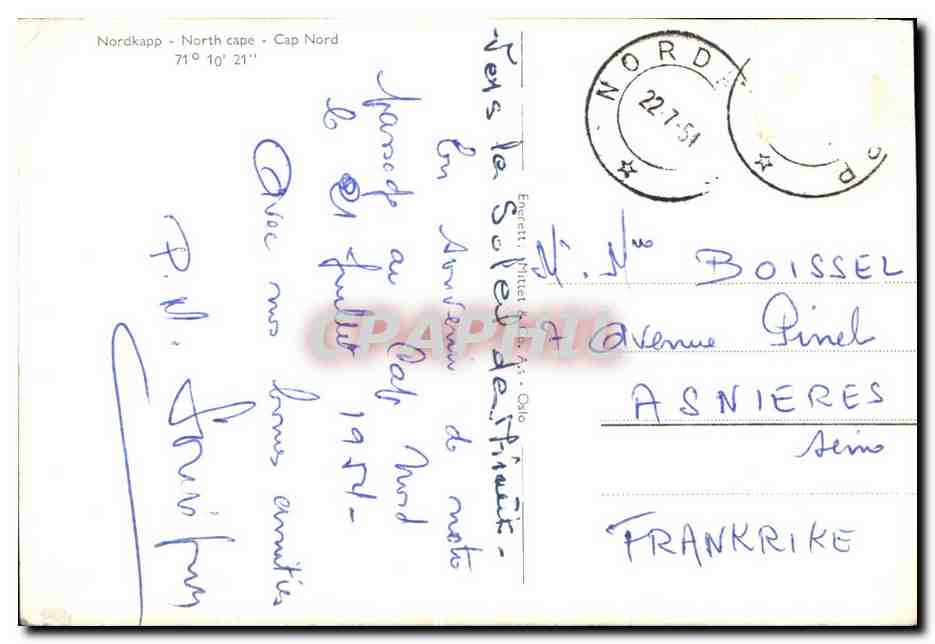 Nordkapp - North cape - Cap Nord
71° 10' 21''
Vers le Soleil de Minuit -
En souvenir de notre
passage au Cap Nord
le 21 juillet 1954 -
Avec nos bonnes amitiés
P. M.
Enerett: Mittet & Co. A.s - Oslo
NORDKAPP
22.7.54
M. Mme BOISSEL
7 avenue Pinel
ASNIERES
Seine
FRANKRIKE
CPAPHIL